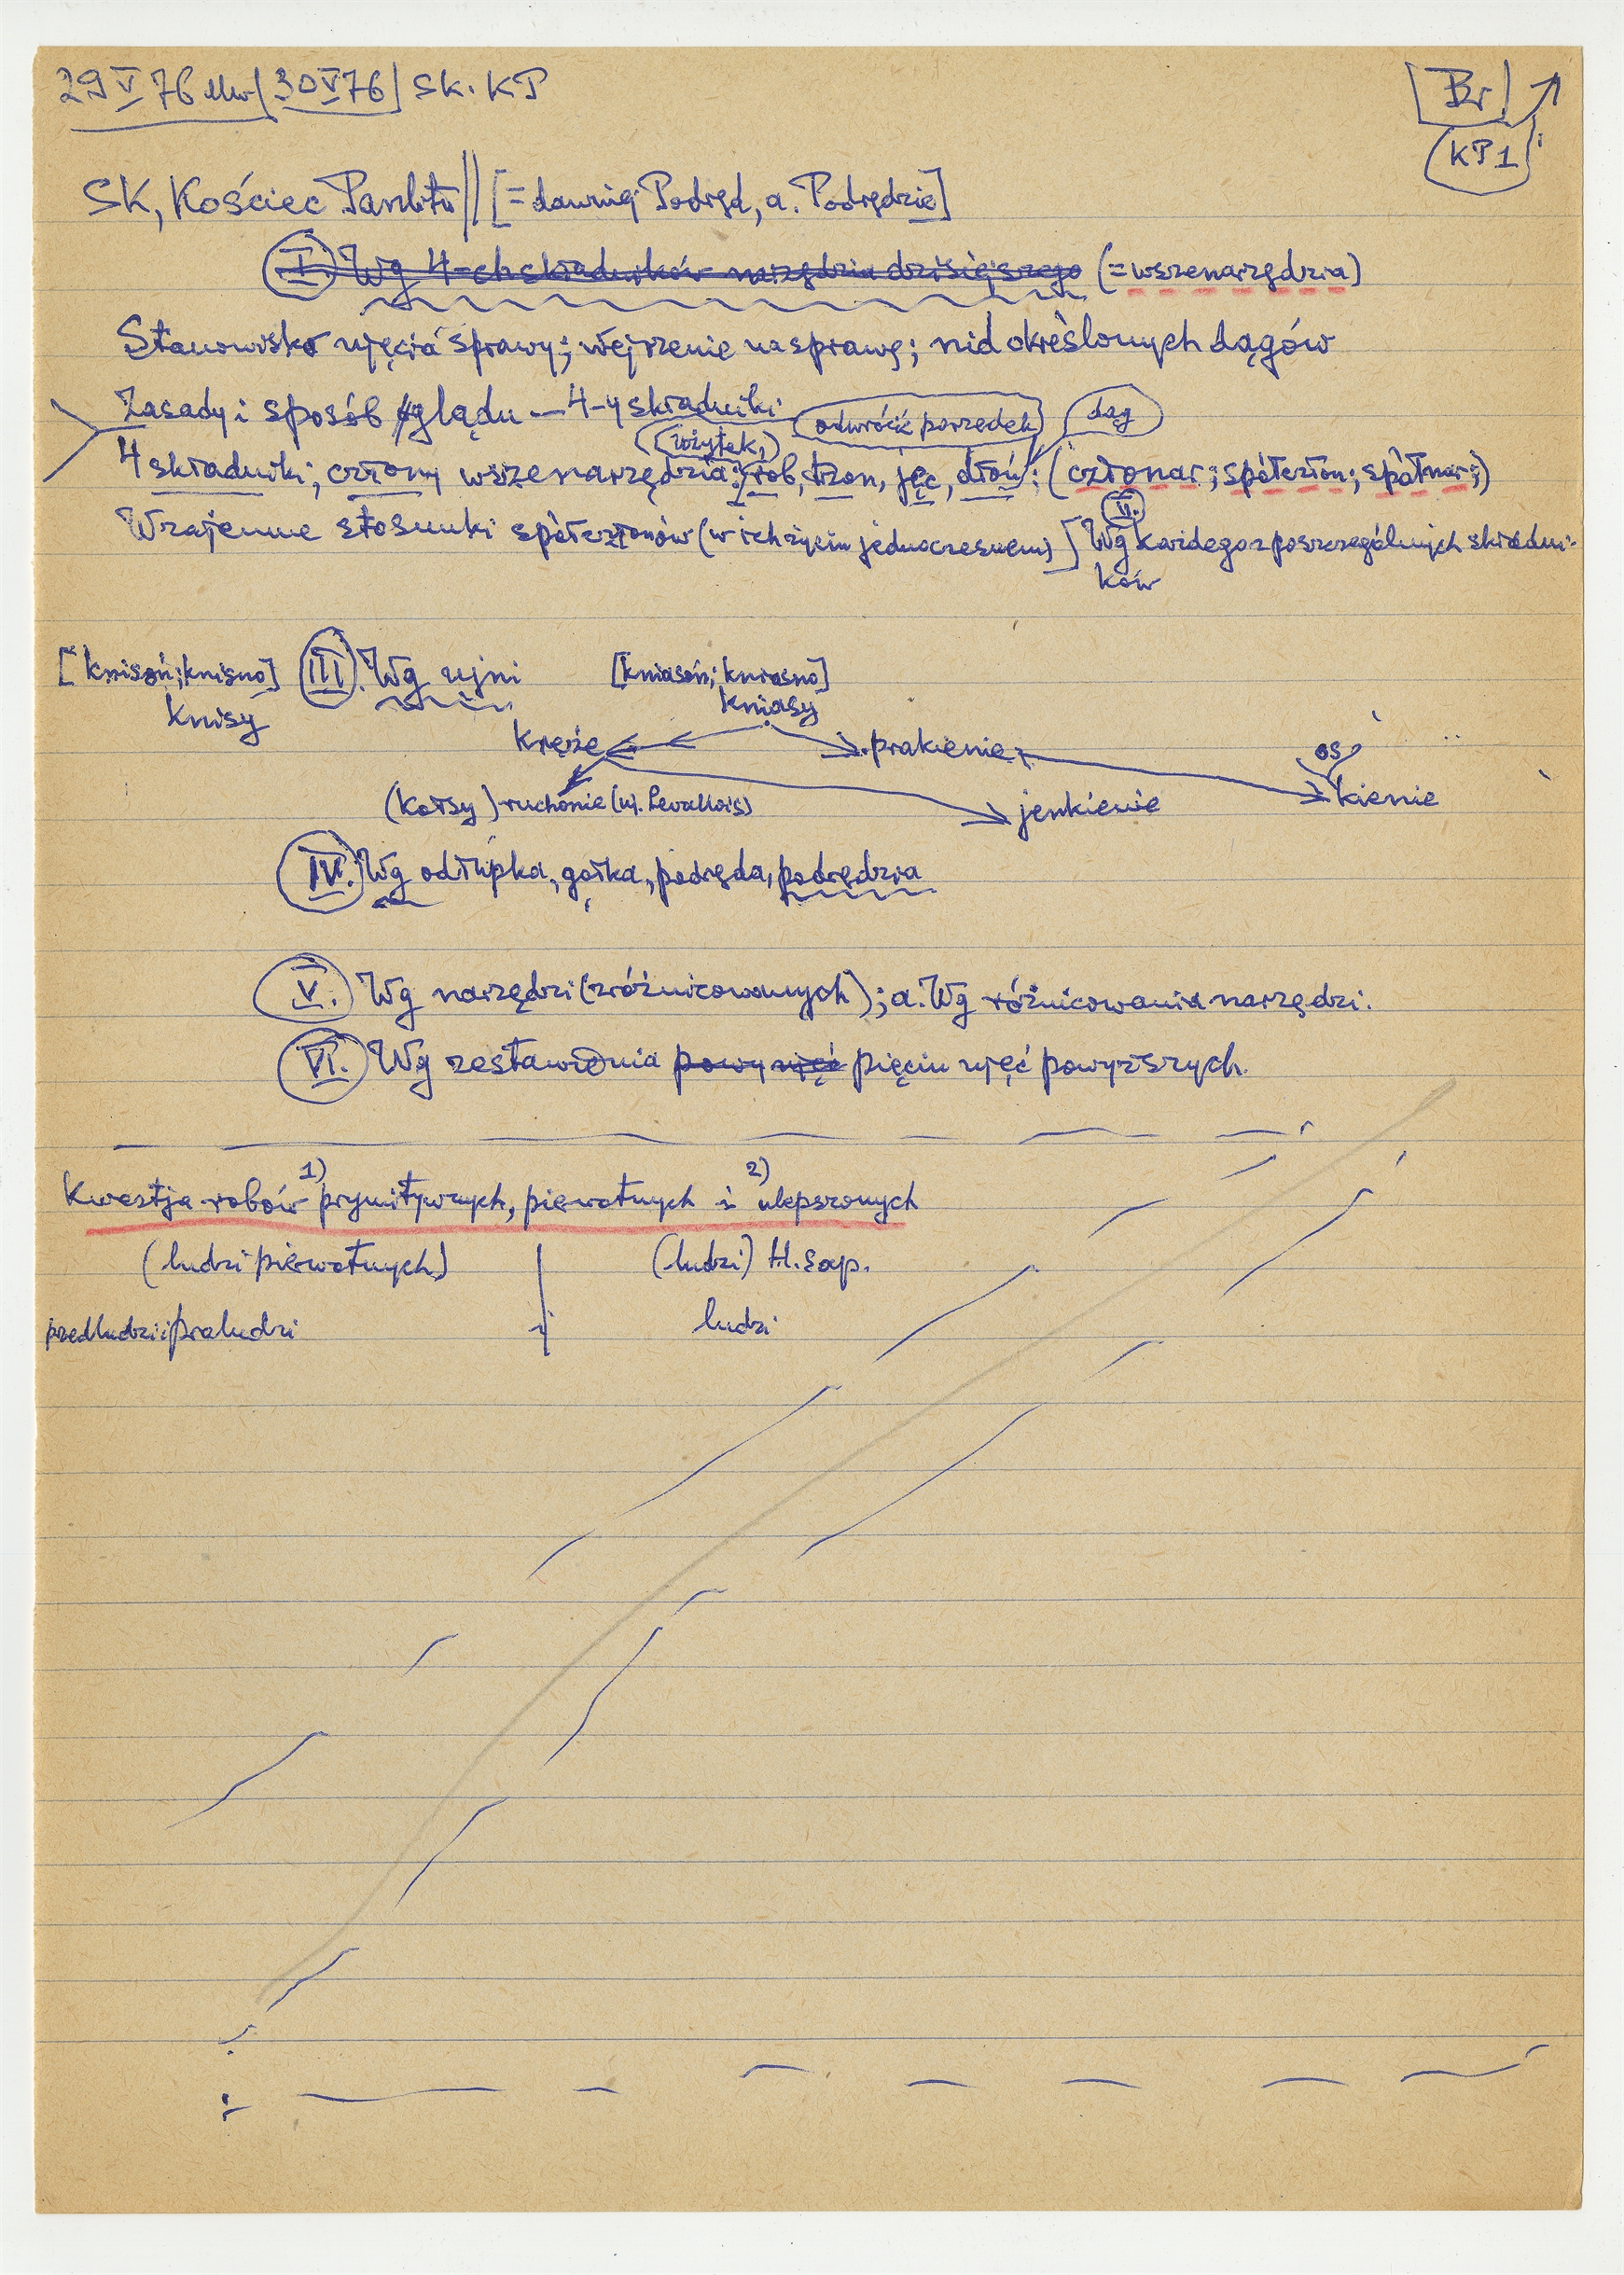 29 V 76 [30 V 76] SK. KP
Br
KP1
SK, Kościec Parultu || [= dawniej Podręd, a. Podrędzie]
I. Wg 4-ch składników narzędzia dzisiejszego (= wszenarzędzia)
Stanowisko ujęcia sprawy; wejrzenie na sprawę; nid określonych dągów
Zasady i sposób glądu — 4-y składniki
użytek, odwrócić porządek dąg
4 składniki; człony wszenarzędzia: rob, trzon, jęc, dłoń: (członar; spółczłon; spółnar;)
Wzajemne stosunki spółczłonów (w ich życiu jednoczesnem)] II. Wg każdego z poszczególnych składni-
ków
[knisoń; knisno] III. Wg ujni [kniasoń; kniasno]
knisy kniasy
kręże prakienie; os
(kołsy) ruchonie (u. Levallois) jenkienie kienie
IV. Wg odłupka, gołka, podręda, podrędzia
V. Wg narzędzi (zróżnicowanych); a. Wg różnicowania narzędzi.
VI. Wg zestawienia powy ujęć pięciu ujęć powyższych.
Kwestja robów 1) prymitywnych, pierwotnych i 2) ulepszonych
(ludzi pierwotnych) (ludzi) H. sap.
przedludzi i praludzi ludzi